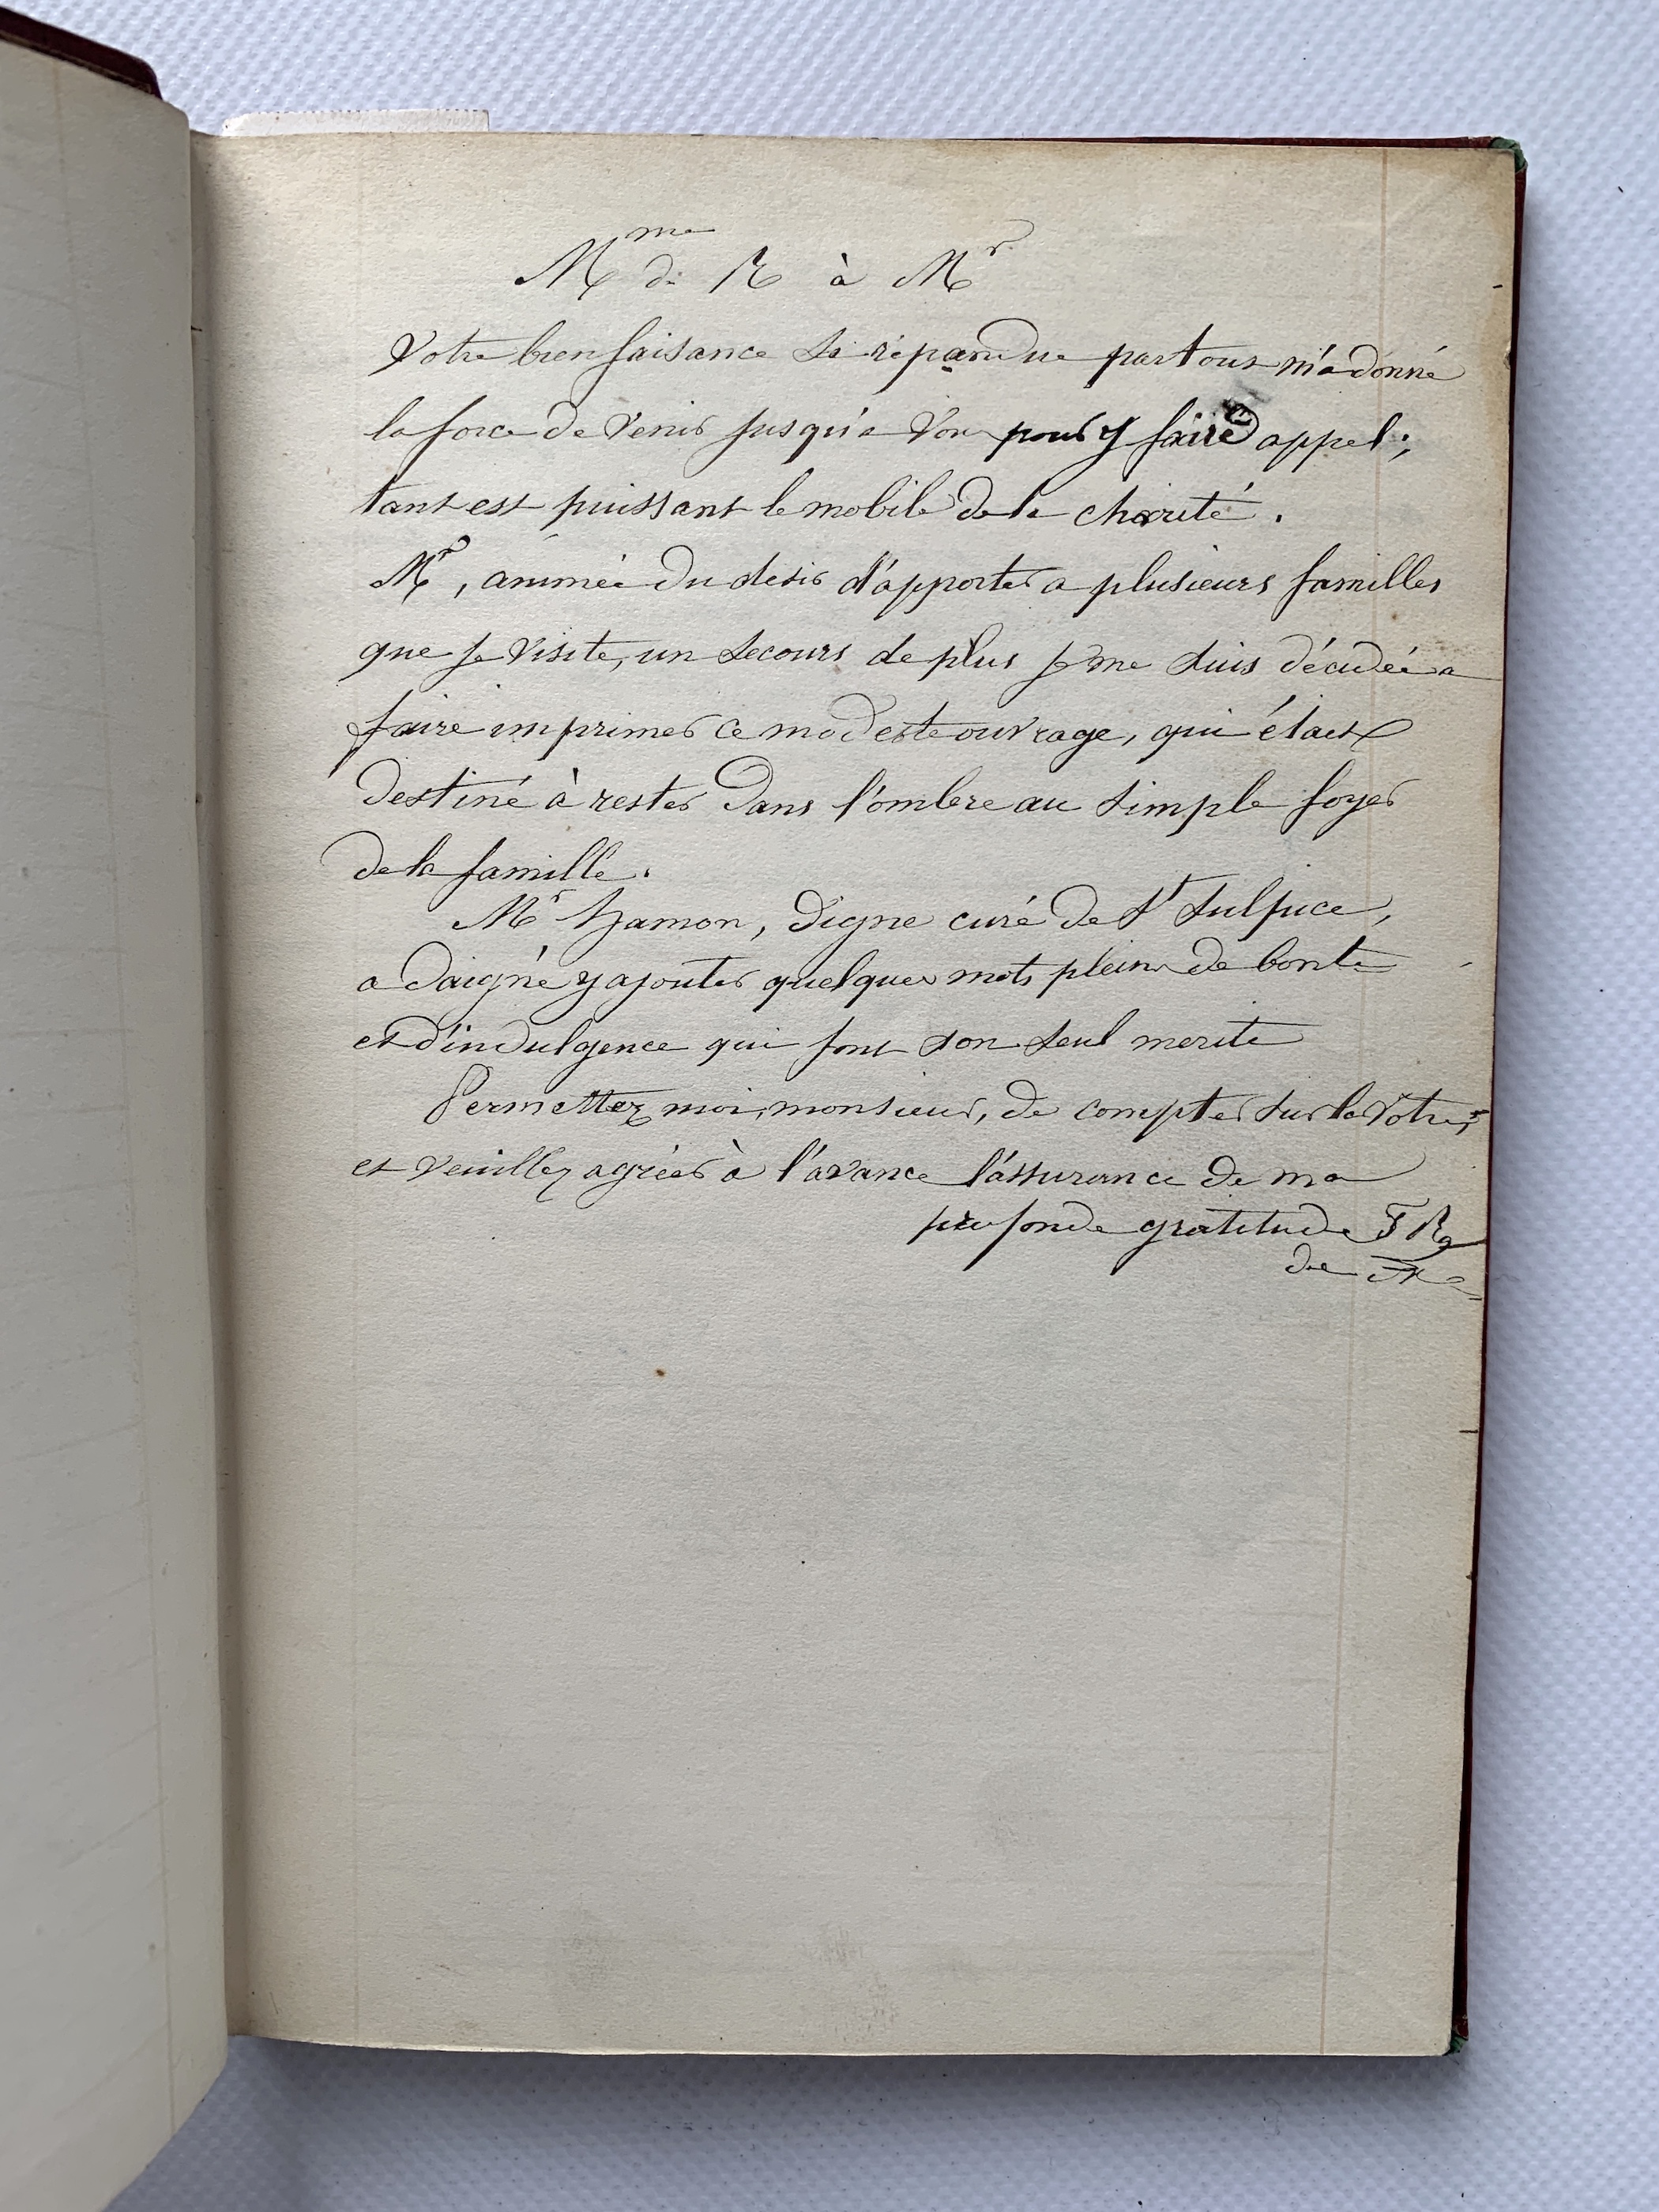 Mme de R à Mr
Votre bienfaisance si répandue partout m'a donné
la force de venir jusqu'a vous pour y faire appel ;
tant est puissant le mobile de la charité .
Mr , animée du desir d'apporter a plusieurs familles
que je visite, un secours de plus je me suis décidée a
faire imprimer ce modeste ouvrage, qui était
destiné à rester dans l'ombre au simple foyer
de la famille .
Mr hamon, digne curé de St Sulpice,
a daigné y ajouter quelques mots pleins de bonté
et d'indulgence qui font son seul merite
Permettez moi, monsieur, de compter sur la votre,
et veuillez agréer à l'avance l'assurance de ma
profonde gratitude
de